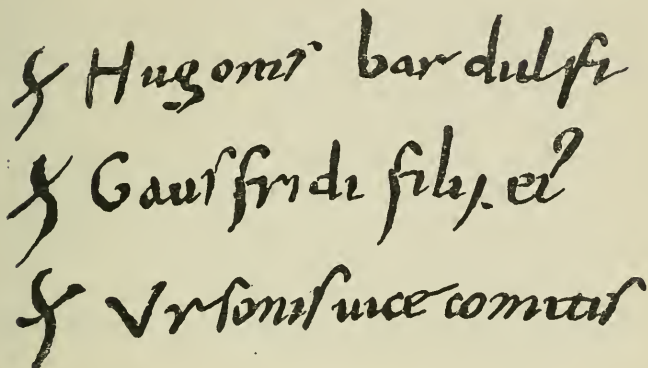 S Hugonis bardulfi
S Gausfridi filij. ei⁹
S Vrsonis uicecomitis